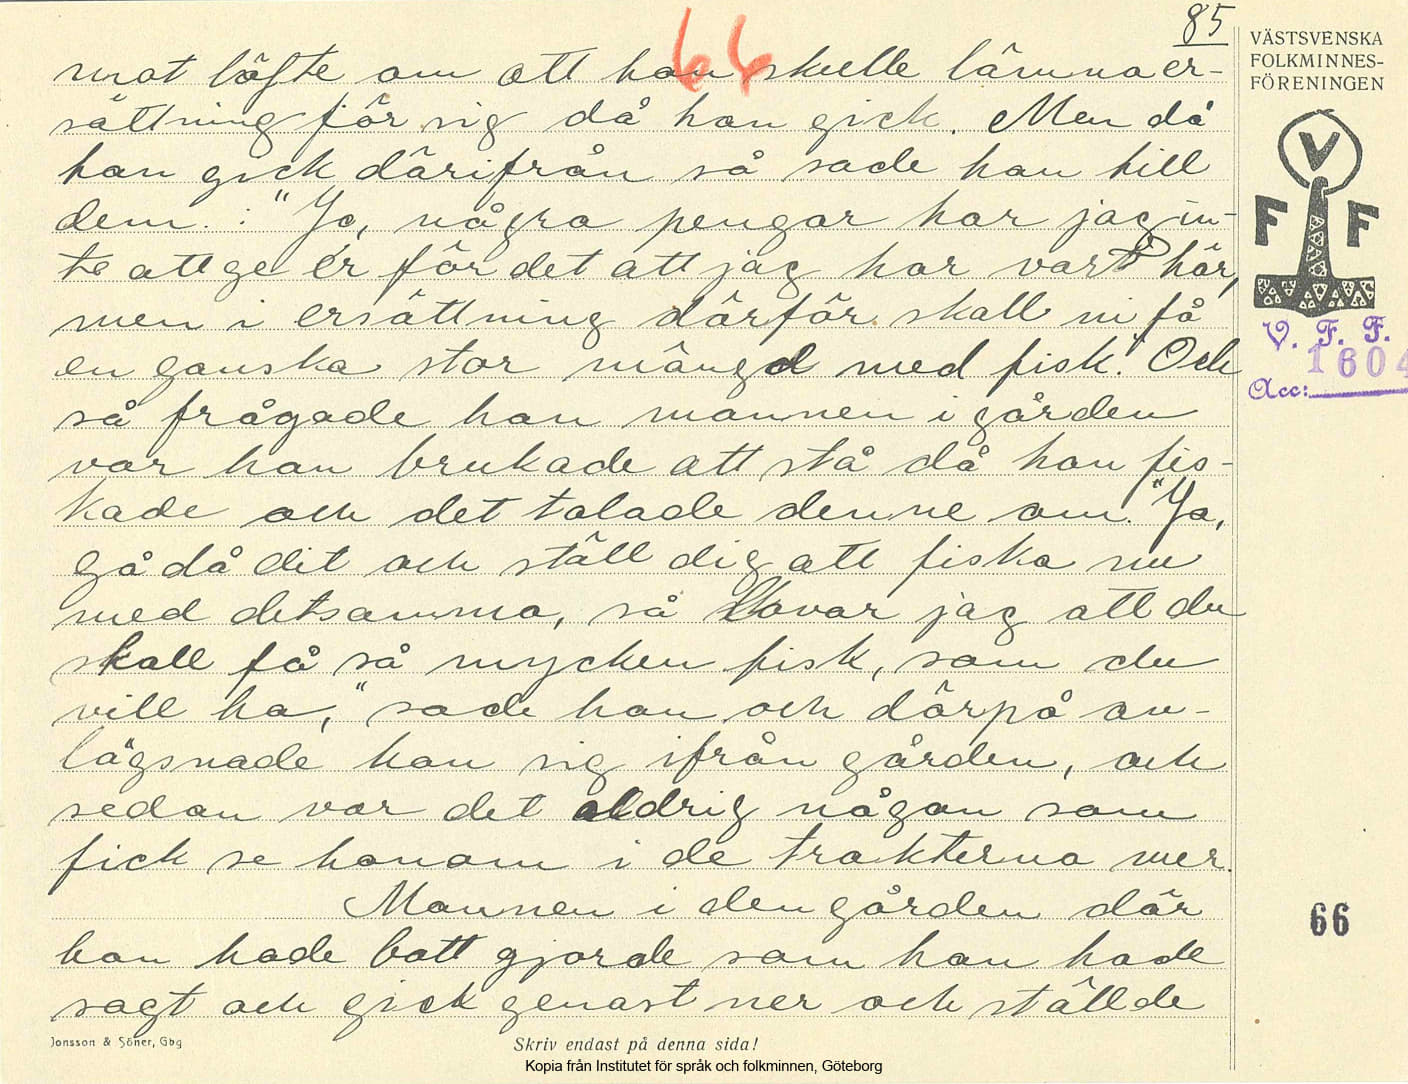 85
66
VÄSTSVENSKA
FOLKMINNES-
FÖRENINGEN
mot löfte om att han skulle lämna er-
sättning för sig då han gick. Men då
han gick därifrån så sade han till
dem: "Ja, några pengar har jag in-
te att ge er för det att jag har vart här,
men i ersättning därför skall ni få
en ganska stor mängd med fisk." Och
så frågade han mannen i gården
var han brukade att stå då han fis-
kade och det talade denne om. "Ja,
gå då dit och ställ dig att fiska nu
med detsamma, så lovar jag att du
skall få så mycken fisk, som du
vill ha," sade han och därpå av-
lägsnade han sig ifrån gården, och
sedan var det aldrig någon som
fick se honom i de trakterna mer.
Mannen i den gården där
han hade bott gjorde som han hade
sagt och gick genast ner och ställde
V
F F
V. F. F.
1604
Acc:
66
Jonsson & Söner, Gbg
Skriv endast på denna sida!
Kopia från Institutet för språk och folkminnen, Göteborg